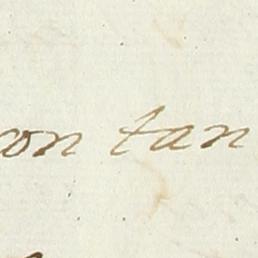 con tan